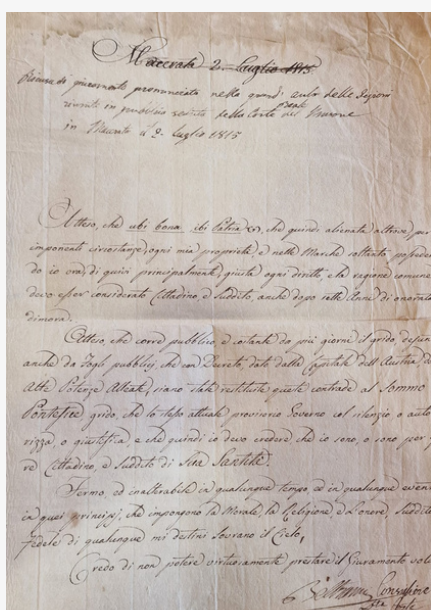 Macerata 2. Luglio 1815
pronunciata nella grand' aula delle
in pubblica della Corte
in Macerata il 2. luglio 1815
Atteso, che ubi bona ibi Patria che quindi alienata altrove, per
imponenti circostanze, ogni mia proprietà, e nelle Marche soltanto posseden
do io ora di quivi principalmente, giusta ogni diritto, e la ragione comune
devo esser considerato Cittadino, e Suddito, anche dopo sette Anni di onorata
dimora.
Atteso, che corre pubblico e costante da più giorni il grido
anche da Fogli pubblici, che con Decreto, dato dalla Capitale dell'Austria
Alte Potenze Alleate, siano state restituite queste contrade al Sommo
Pontefice grido, che lo stesso attuale provisorio Governo col silenzio o auto
rizza, o giustifica e che quindi io devo credere che io sono, o sono per
re Cittadino, e Suddito di Sua Santità.
Fermo, ed inalterabile in qualunque tempo, ed in qualunque
in quei principj, che impongono la Morale, la Religione e l'onore, suddito
fedele di qualunque mi destini Sovrano il Cielo,
Credo di non potere virtuosamente prestare il Giuramento
Consigliere